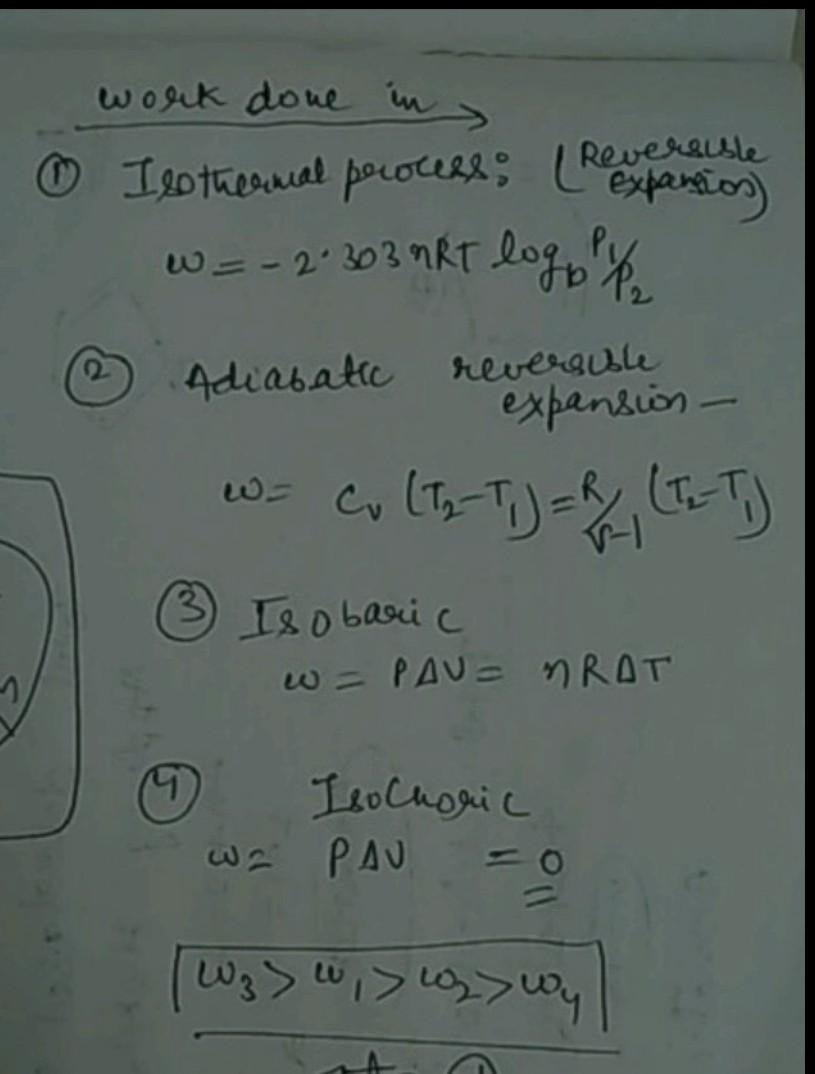 work done in →
① Isothermal process: (Reversible expansion)
w = - 2.303 nRT log₁₀ P₁/P₂
② Adiabatic reversible
expansion —
w = Cᵥ (T₂-T₁) = R/γ-1 (T₂-T₁)
③ Isobaric
w = PΔV = nRΔT
④ Isochoric
w = PΔV = 0
w₃ > w₁ > w₂ > w₄